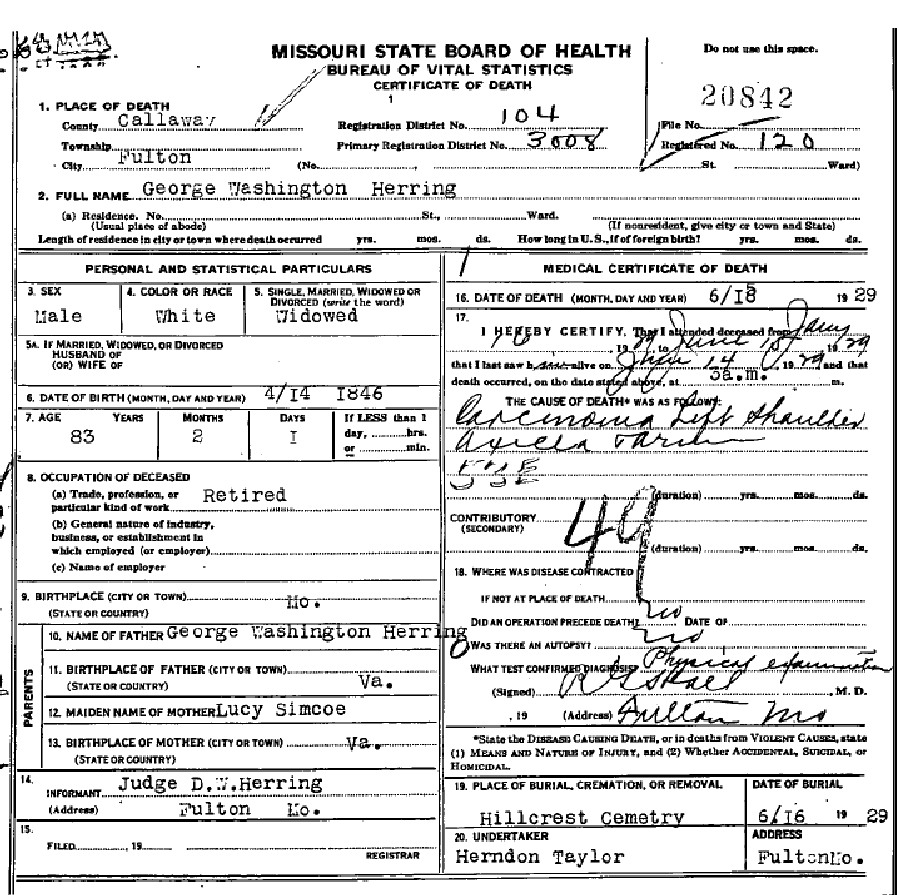 MISSOURI STATE BOARD OF HEALTH
BUREAU OF VITAL STATISTICS
CERTIFICATE OF DEATH
Do not use this space.
20842
1. PLACE OF DEATH
County Callaway Registration District No. 104 File No.
Township Primary Registration District No. 3008 Registered No. 120
City Fulton (No. St. Ward)
2. FULL NAME George Washington Herring
(a) Residence. No. St., Ward.
(Usual place of abode) (If nonresident, give city or town and State)
Length of residence in city or town where death occurred yrs. mos. ds. How long in U.S., if of foreign birth? yrs. mos. ds.
PERSONAL AND STATISTICAL PARTICULARS
3. SEX 4. COLOR OR RACE 5. SINGLE, MARRIED, WIDOWED OR
DIVORCED (write the word)
Male White Widowed
5A. IF MARRIED, WIDOWED, OR DIVORCED
HUSBAND OF
(OR) WIFE OF
6. DATE OF BIRTH (MONTH, DAY AND YEAR) 4/14 1846
7. AGE YEARS MONTHS DAYS If LESS than 1
day, hrs.
or min.
83 2 I
8. OCCUPATION OF DECEASED
(a) Trade, profession, or
particular kind of work Retired
(b) General nature of industry,
business, or establishment in
which employed (or employer)
(c) Name of employer
9. BIRTHPLACE (CITY OR TOWN) Mo.
(STATE OR COUNTRY)
PARENTS
10. NAME OF FATHER George Washington Herring
11. BIRTHPLACE OF FATHER (CITY OR TOWN)
(STATE OR COUNTRY) Va.
12. MAIDEN NAME OF MOTHER Lucy Simcoe
13. BIRTHPLACE OF MOTHER (CITY OR TOWN) Va.
(STATE OR COUNTRY)
14.
INFORMANT Judge D.W.Herring
(Address) Fulton Mo.
15.
FILED , 19
REGISTRAR
MEDICAL CERTIFICATE OF DEATH
16. DATE OF DEATH (MONTH, DAY AND YEAR) 6/18 1929
17.
I HEREBY CERTIFY, That I attended deceased from Jany
19 29 to June 19 29
that I last saw h alive on June 14, 19 29 and that
death occurred, on the date stated above, at 3a.m. m.
THE CAUSE OF DEATH* WAS AS FOLLOWS:
Carcinoma Left Shoulder
axilla
(duration) yrs. mos. ds.
CONTRIBUTORY
(SECONDARY)
49
(duration) yrs. mos. ds.
18. WHERE WAS DISEASE CONTRACTED
IF NOT AT PLACE OF DEATH
DID AN OPERATION PRECEDE DEATH? no DATE OF
WAS THERE AN AUTOPSY? no
WHAT TEST CONFIRMED DIAGNOSIS? Physical examination
(Signed) , M. D.
, 19 (Address) Fulton Mo
*State the DISEASE CAUSING DEATH, or in deaths from VIOLENT CAUSES, state
(1) MEANS AND NATURE OF INJURY, and (2) Whether ACCIDENTAL, SUICIDAL, or
HOMICIDAL.
19. PLACE OF BURIAL, CREMATION, OR REMOVAL DATE OF BURIAL
Hillcrest Cemetry 6/16 19 29
20. UNDERTAKER ADDRESS
Herndon Taylor FultonMo.